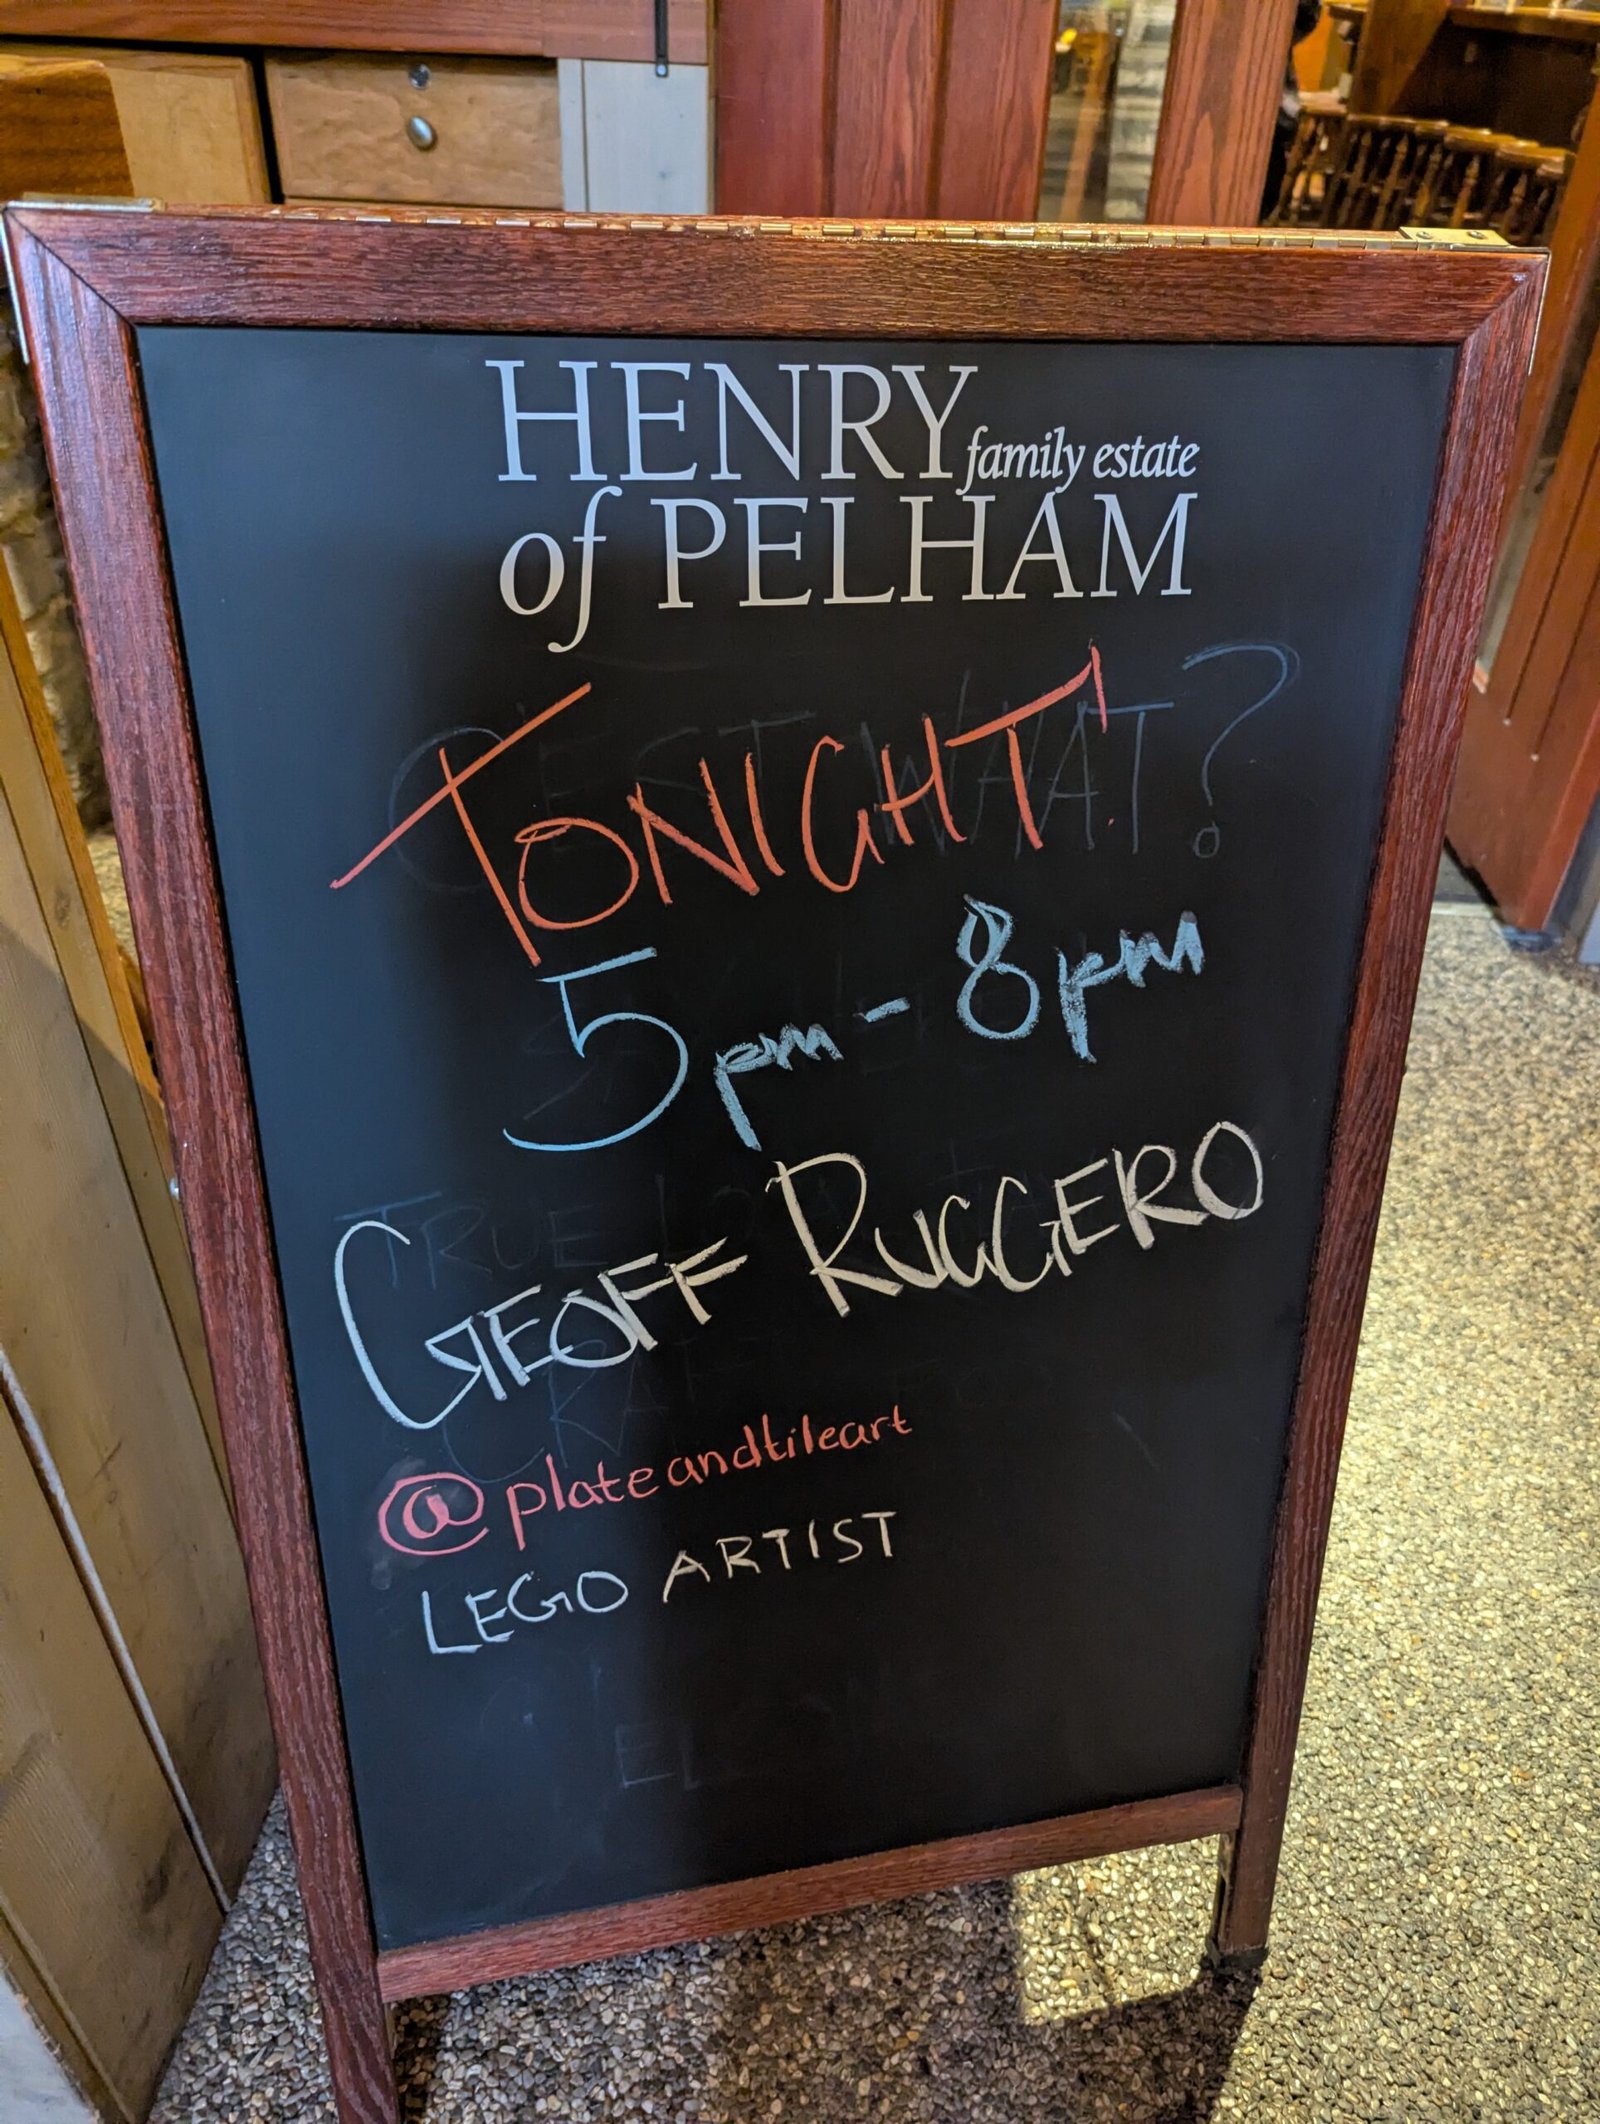 HENRY family estate
of PELHAM
TONIGHT!
C'EST WHAT?
5pm - 8pm
GEOFF RUGGERO
TRUE
@plateandtileart
LEGO ARTIST